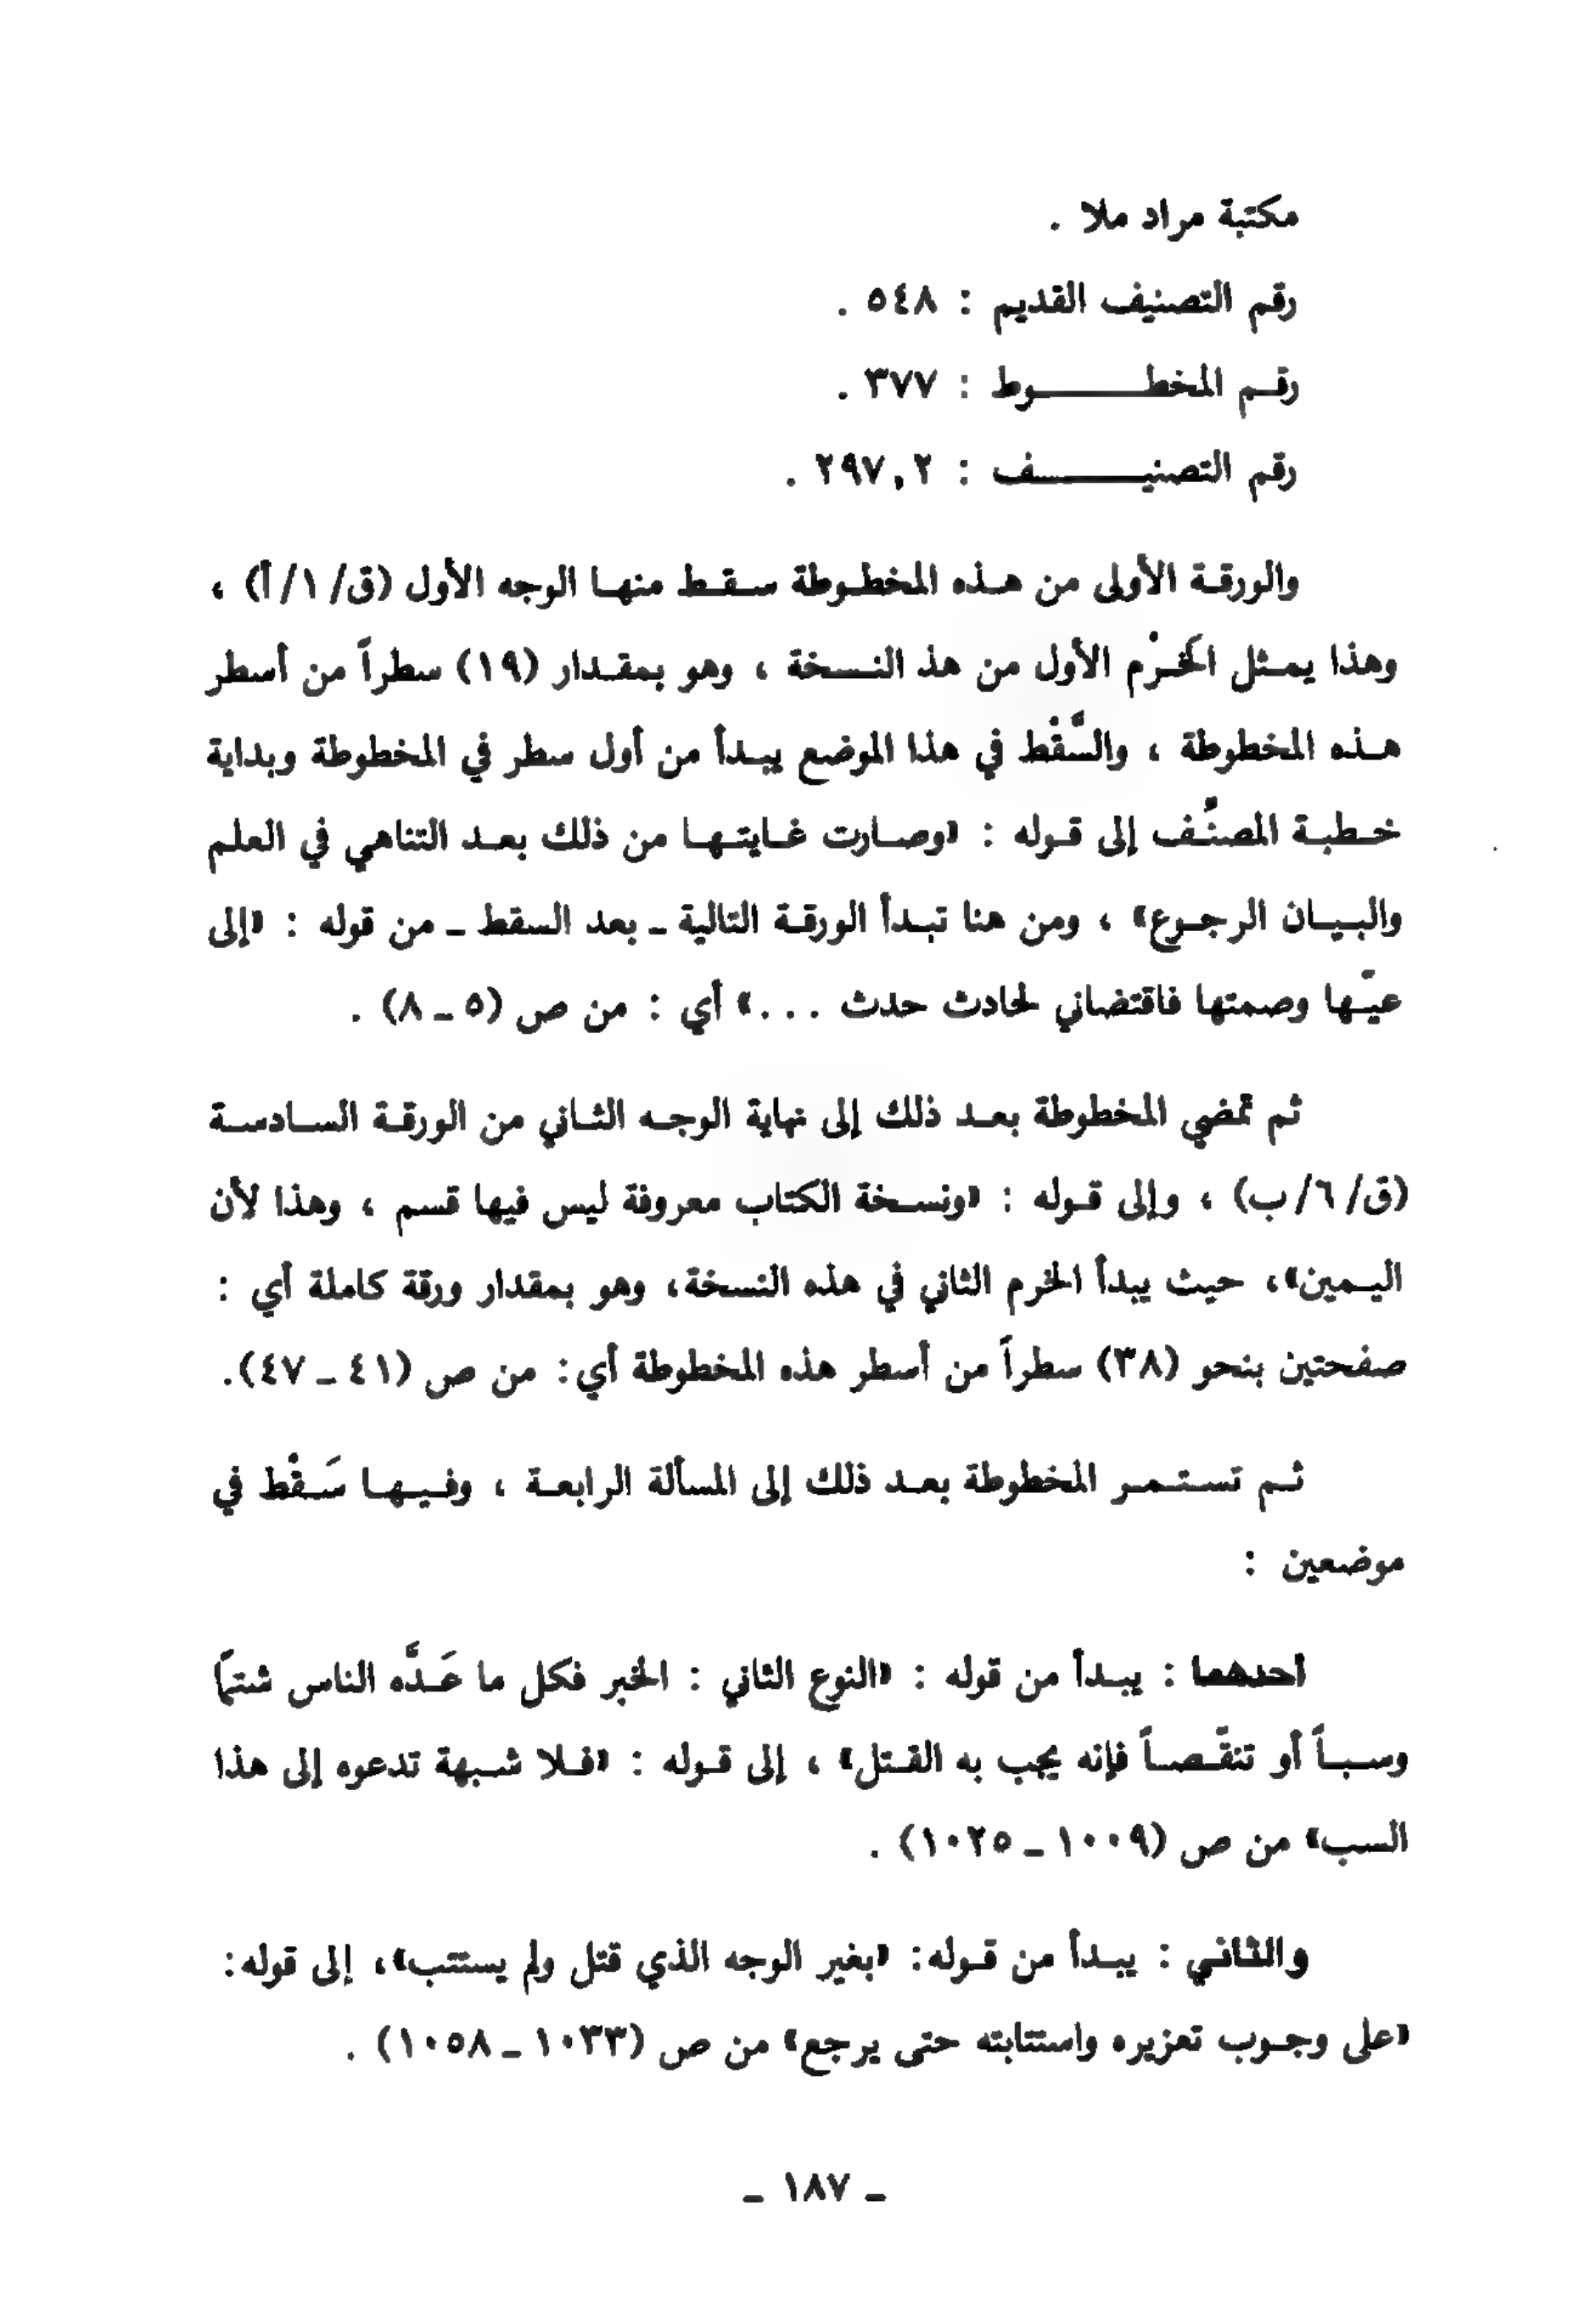 مكتبة مراد ملا .
رقم التصنيف القديم : ٥٤٨ .
رقم المخطوط : ٣٧٧ .
رقم التصنيف : ٢٩٧,٢ .
والورقة الأولى من هذه المخطوطة سقط منها الوجه الأول (ق/١/أ) ،
وهذا يمثل الخَرْم الأول من هذ النسخة ، وهو بمقدار (١٩) سطراً من أسطر
هذه المخطوطة ، والسَّقْط في هذا الموضع يبدأ من أول سطر في المخطوطة وبداية
خطبة المصنِّف إلى قوله : «وصارت غايتها من ذلك بعد التناهي في العلم
والبيان الرجوع» ، ومن هنا تبدأ الورقة التالية ـ بعد السقط ـ من قوله : «إلى
عيّها وصمتها فاقتضاني لحادث حدث ...» أي : من ص (٥ ـ ٨) .
ثم تمضي المخطوطة بعد ذلك إلى نهاية الوجه الثاني من الورقة السادسة
(ق/٦/ب) ، وإلى قوله : «ونسخة الكتاب معروفة ليس فيها قسم ، وهذا لأن
اليمين»، حيث يبدأ الخرم الثاني في هذه النسخة، وهو بمقدار ورقة كاملة أي :
صفحتين بنحو (٣٨) سطراً من أسطر هذه المخطوطة أي: من ص (٤١ ـ ٤٧).
ثم تستمر المخطوطة بعد ذلك إلى المسألة الرابعة ، وفيها سَقْط في
موضعين :
أحدهما : يبدأ من قوله : «النوع الثاني : الخبر فكل ما عَدَّه الناس شتماً
وسباً أو تنقّصاً فإنه يجب به القتل» ، إلى قوله : «فلا شبهة تدعوه إلى هذا
السب» من ص (١٠٠٩ ـ ١٠٢٥) .
والثاني : يبدأ من قوله: «بغير الوجه الذي قتل ولم يستتب»، إلى قوله:
«على وجوب تعزيره واستتابته حتى يرجع» من ص (١٠٣٣ ـ ١٠٥٨) .
ـ ١٨٧ ـ